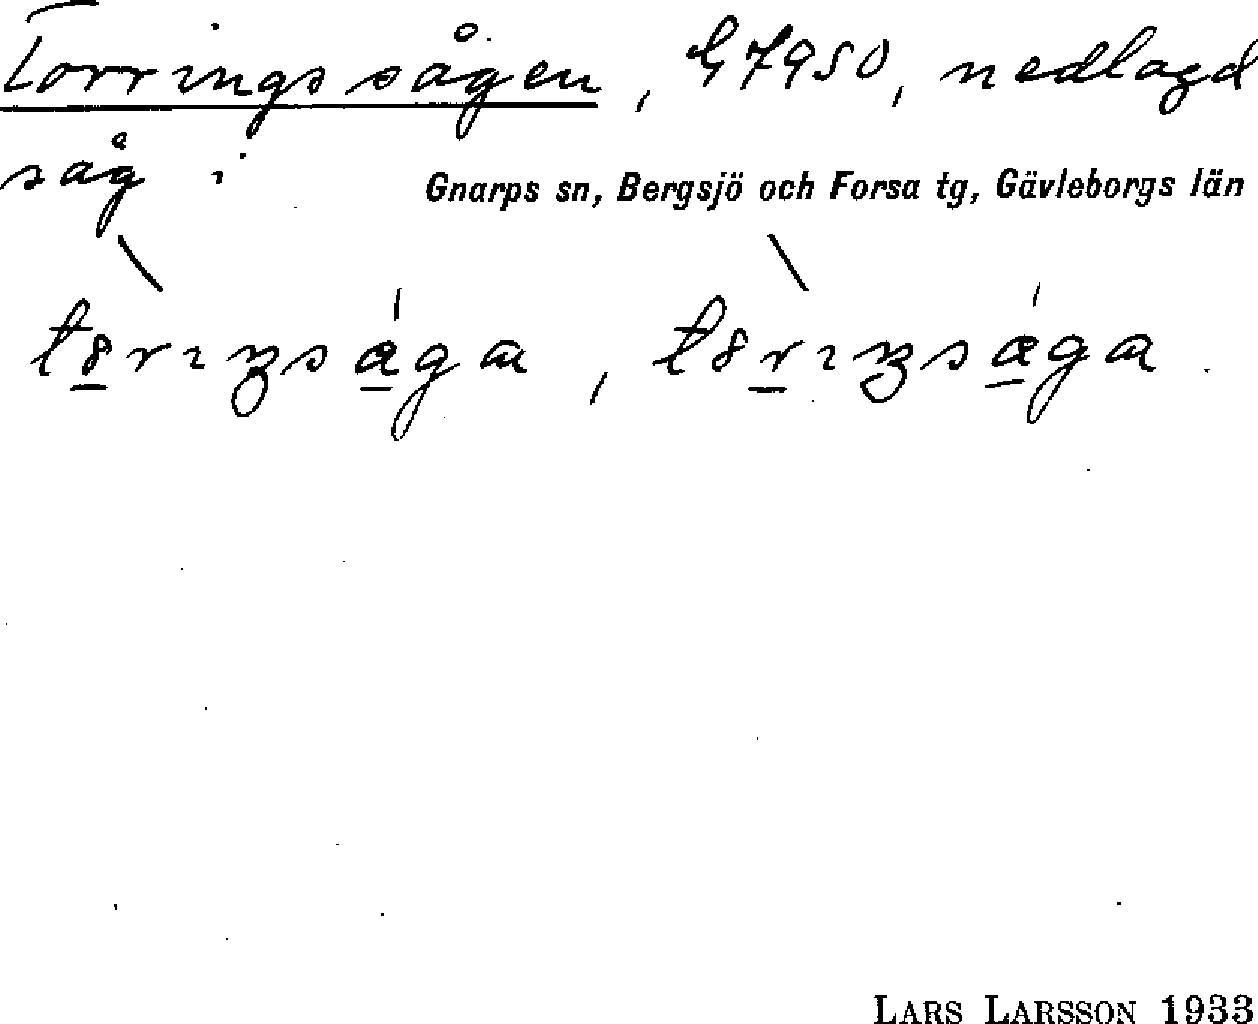 Torringssågen, G7950, nedlagd
såg i Gnarps sn, Bergsjö och Forsa tg, Gävleborgs län
LARS LARSSON 1933